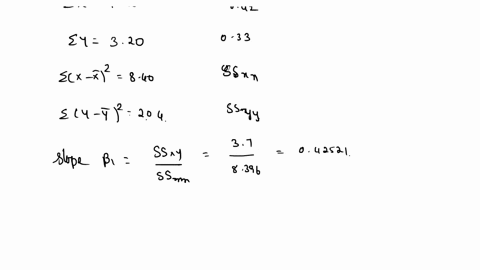 0.42
ΣY = 3.20 0.33
Σ(x-x̄)² = 8.40 SSxx
Σ(Y-ȳ)² = 2.04 SSyy
Slope β₁ = SSxy / SSxx = 3.7 / 8.396 = 0.42521.